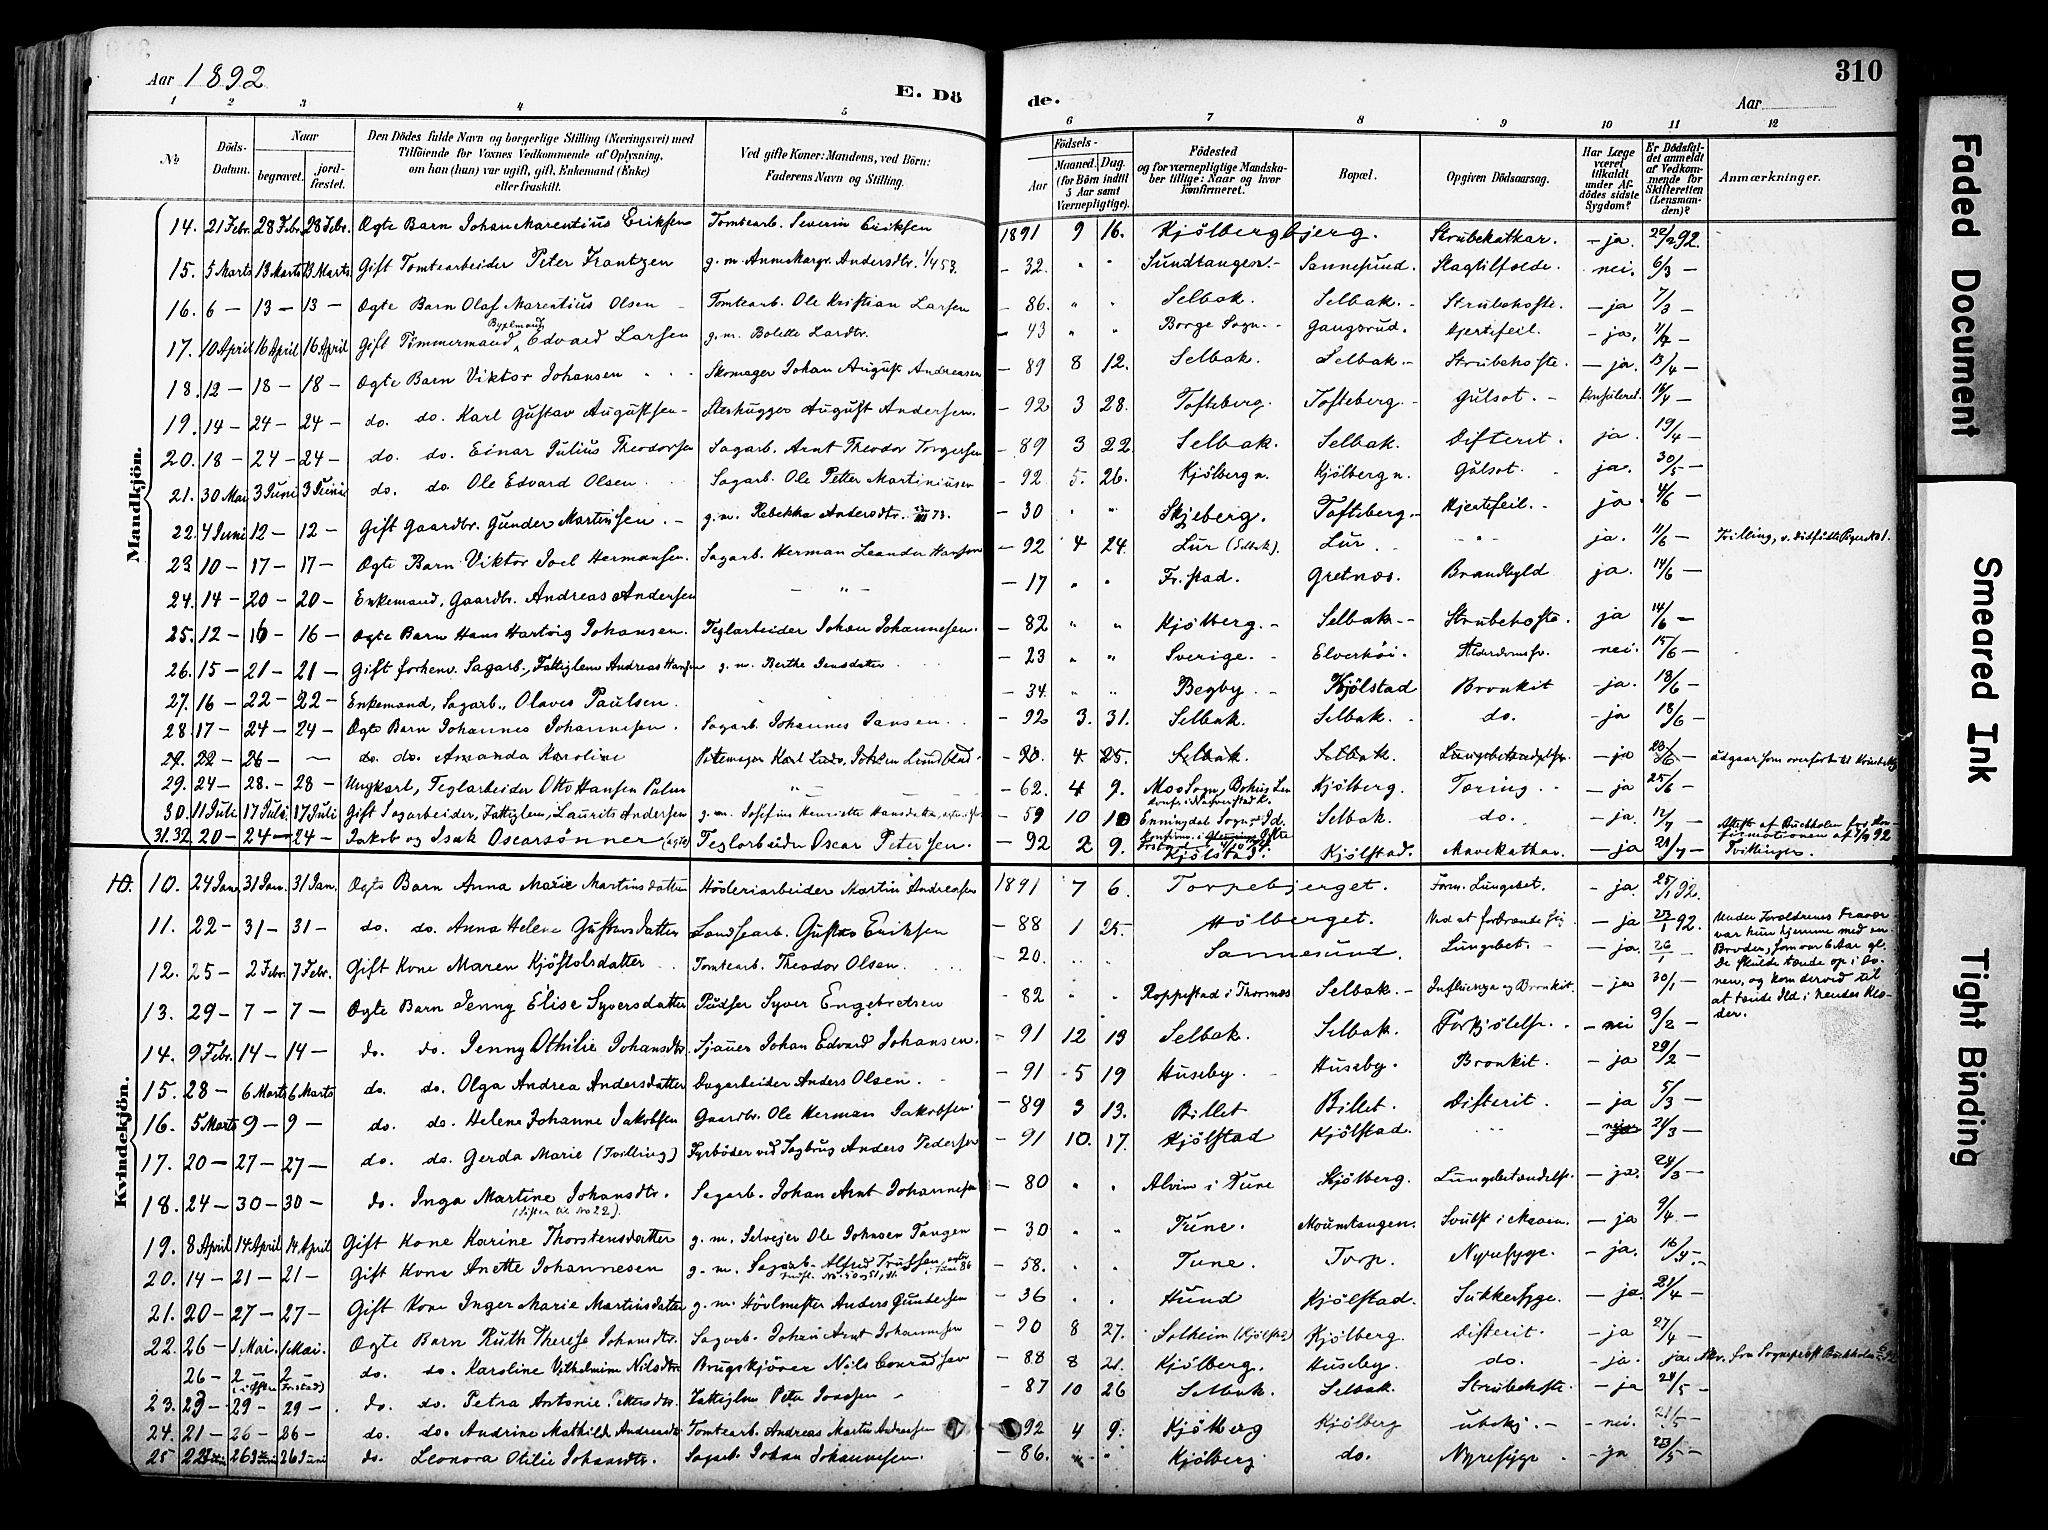 Aar 1892
E. Dö
de.
Aar
310
1 2 3 4 5 6 7 8 9 10 11 12
No
Döds-Datum.
Naar
begravet.
jord-fæstet.
Den Dödes fulde Navn og borgerlige Stilling (Næringsvei) med
Tilföiende for Voxnes Vedkommende af Oplysning,
om han (hun) var ugift, gift, Enkemand (Enke)
eller fraskilt.
Ved gifte Koner: Mandens, ved Börn:
Faderens Navn og Stilling.
Födsels-
Aar
Maaned. Dag.
(for Börn indtil
5 Aar samt
Værnepligtige).
Födested
og for værnepligtige Mandska-
ber tillige: Naar og hvor
konfirmeret.
Bopæl.
Opgiven Dödsaarsag.
Har Læge
været
tilkaldt
under Af-
dödes sidste
Sygdom?
Er Dödsfal-
det anmeldt
af Vedkom-
mende for
Skifteretten
(Lensman-
den)?
Anmærkninger.
Mandkjön.
14. 21 Febr. 28 Febr. 28 Febr. Ægte Barn Johan Marentius Eriksen Tomtearb. Severin Eriksen 1891 9 16. Kjölbergbjerg. Strubekathar. - ja. 22/2 92.
15. 5 Marts 13 Marts 13 Marts Gift Tomtearbeider Peter Frantzen g. m. Anne Margr. Andersdtr. 1/4 53. - 32. " " Sundtangen. - Sannesund. Slagtilfælde. nei. 6/3 -
16. 6 - 13 - 13 - Ægte Barn Olaf Marentius Olsen Tomtearb. Ole Kristian Larsen - 86. " " Selbak. Selbak. - Strubehoste. - ja 7/3 -
17. 10 April 16 April 16 April Gift Tömmermand, Edvard Larsen g. m. Bolette Larsdtr. - 43 " " Borge Sogn. - Gangsrud. Hjertefeil. - ja. 11/4 -
18. 12 - 18 - 18 - Ægte Barn Viktor Johansen Skomager Johan August Andreasen - 89 8 12. Selbak. Selbak. - Strubehoste. - ja. 13/4 -
19. 14 - 24 - 24 - do. do. Karl Gustav Augustsen - Stenhugger August Andersen. - 92 3 28. Tofteberg. Tofteberg. - Gulsot. - konsuleret. 14/4 -
20. 18 - 24 - 24 - do. do. Einar Julius Theodorsen Sagarb. Arnt Theodor Torgersen - 89 3 22. Selbak. Selbak. Difterit. ja. 19/4 -
21. 30 Mai 3 Juni 3 Juni do. do. Ole Edvard Olsen Sagarb. Ole Petter Martiniusen - 92 5. 26. Kjölberg n. Kjölberg n. Gulsot. ja. 30/5 -
22. 4 Juni 12 - 12 - Gift Gaardbr. Gunder Martinsen. - g. m. Rebekka Andersdtr. 73. - 30 " " Skjeberg. Tofteberg. - Hjertefeil. - ja. 4/6 -
23 10 - 17 - 17 - Ægte Barn Viktor Joel Hermansen. Sagarb. Herman Leander Hansen - 92 4 24. Lur (Selbak). Lur. - " - ja. 11/6 - Tvilling, v. dödfödte Piger No 1.
24. 14 - 20 - 20 - Enkemand, Gaardbr. Andreas Andersen - " - - 17 " " Fr.stad. Gretnes. Brandbyld ja. 14/6 -
25. 12 - 16 - 16 - Ægte Barn Hans Hartvig Johansen. Teglarbeider Johan Johannesen. - 82 " " Kjölberg. - Selbak. - Strubehoste. ja 14/6 -
26. 15 - 21 - 21 - Gift forhenv. Sagarb., Fattiglem Andreas Hansen g. m. Berthe Jensdatter - 23 " " Sverige. - Elverhöi. Alderdomssv. nei. 15/6 -
27. 16 - 22 - 22 - Enkemand, Sagarb., Olaves Paulsen. - 34. " " Begby. - Kjölstad Bronkit - ja. 18/6 -
28. 17 - 24 - 24 - Ægte Barn Johannes Johannesen. Sagarb. Johannes Jansen. - 92 3. 31. Selbak. Selbak. do. - ja 18/6 -
29. 22 - 26 - - do. do. Amanda Karoline - 20. 4 25. Selbak Selbak. Lungebetændelse. - ja 23/6 -
29. 24 - 28. - 28 - Ungkarl, Teglarbeider Otto Hansen Palm - 62. 4 9. Mo Sogn, Bohus Len Kjölberg. Tæring. - ja 25/6 -
30. 11 Juli 17 Juli 17 Juli Gift Sagarbeider, Fattiglem, Laurits Andersen g. m. Josefine Henriette Hansdatter - 59 10 10 Enningdal Sogn, Id. Selbak. do. - ja. 12/7 - Attest af Buchholm for Kon-
firmationen af 92
31.32 20 - 24 - 24 - Jakob og Isak Oscarsönner (ægte) Teglarbeider Oscar Petersen. - 92 2 9. Kjölstad. Kjölstad. Mavekathar. - ja 28/7 - Tvillinger.
Kvindekjön.
10. 10. 24 Jan. 31 Jan. 31 Jan. Ægte Barn Anna Marie Martinsdatter Hövleriarbeider Martin Andreasen 1891 7 6. Torpebjerget. Form. Lungebet. - ja. 25/1 92.
11. 22 - 31 - 31 - do. do. Anna Helene Gustavsdatter Landsearb. Gustav Eriksen - 88 1 25. Hölberget. Ved at forbrænde sig. - ja 23/1 92. Under Forældrenes Fravær
var hun hjemme med en
Broder, som var 6 Aar gl.
De skulde tænde op i Ov-
nen, og kom derved til
at tænde Ild i hendes Klæ-
der.
12. 25 - 2 Febr. 7 Febr. Gift Kone Maren Kjöstolsdatter Tomtearb. Theodor Olsen. - 20. Sannesund. Lungebet. - - ja. 26/1 -
13. 29 - 7 - 7 - Ægte Barn Jenny Elise Syversdatter Pudser Syver Engebretsen - 82 " " Roppestad i Thorsnæs Selbak. - Influenza og Bronkit. - ja 30/1 -
14. 9 Febr. 14 - 14 - do. do. Jenny Othilie Johansdtr. Sjauer Johan Edvard Johansen. - 91 12 13 Selbak. Selbak. Forkjölelse. - nei 9/2 -
15. 28 - 6 Marts 6 Marts do. do. Olga Andrea Andersdatter Dagarbeider Anders Olsen. - 91 5 19 Huseby. Huseby. Bronkit. - ja 29/2 -
16. 5 Marts 9 - 9 - do. do. Helene Johanne Jakobsen Gaardbr. Ole Herman Jakobsen. - 89 3 13. Billet Billet. Difterit. - ja 5/3 -
17. 20 - 27 - 27 - do. do. Gerda Marie (Tvilling) Fyrböder ved Sagbrug Anders Pedersen - 91 10. 17. Kjölstad Kjölstad. " - nei 21/3 -
18. 24 - 30 - 30 - do. Inga Martine Johansdtr. (Söster til No 22). Sagarb. Johan Arnt Johannesen - 80 " " Alvim i Tune Kjölberg. Lungebetændelse. - ja. 24/3 -
19. 8 April 14 April 14 April Gift Kone Karine Thorstensdatter g. m. Selveier Ole Johnsen Tangen - 30 " " Tune. Moumtangen. Svulst i Maven. - ja 9/4 -
20. 14 - 21 - 21 - Gift Kone Anette Johannesen g. m. Sagarb. Alfred Trulssen - 58. " " Tune. Torp. Nyresyge. - ja. 16/4 -
21. 20 - 27 - 27 - Gift Kone Inger Marie Martinsdatter g. m. Hövlmester Anders Gundersen - 36 " " Hund Kjölstad. Sukkersyge. - ja. 21/4 -
22. 26 - 1 Mai. 1 Mai. Ægte Barn Ruth Therese Johansdtr. Sagarb. Johan Arnt Johannesen - 90 8 27. Solheim (Kjölstad) Kjölberg. Difterit. - ja 27/4 -
26 - 2 - 2 - (i Östre Fr.stad) do. do. Karoline Vilhelmine Nilsdtr. Brugskjörer Nils Conradsen - 88 8 21. Kjölberg. Huseby. do. - ja. ja.
23. 23 - 29 - 29 - do. do. Petra Antonie Pettersdtr. Fattiglem Peter - 87 10 26 Selbak. Selbak. Strubehoste. - ja 24/5 -
24. 21 - 26 - 26 - do. do. Andrine Mathilde Andreasdtr Tomtearb. Andreas Martin Andreasen - 92 4 9. Kjölberg Kjölberg ubekj. - - nei. 21/5 -
25 22 26 Juni 26 Juni do. Leonora Otilie Johansdtr. Sagarb. Johan Johannesen. - 86. " " Kjölberg do. Nyresyge - ja 23/5 -
Faded Document
Smeared Ink
Tight Binding